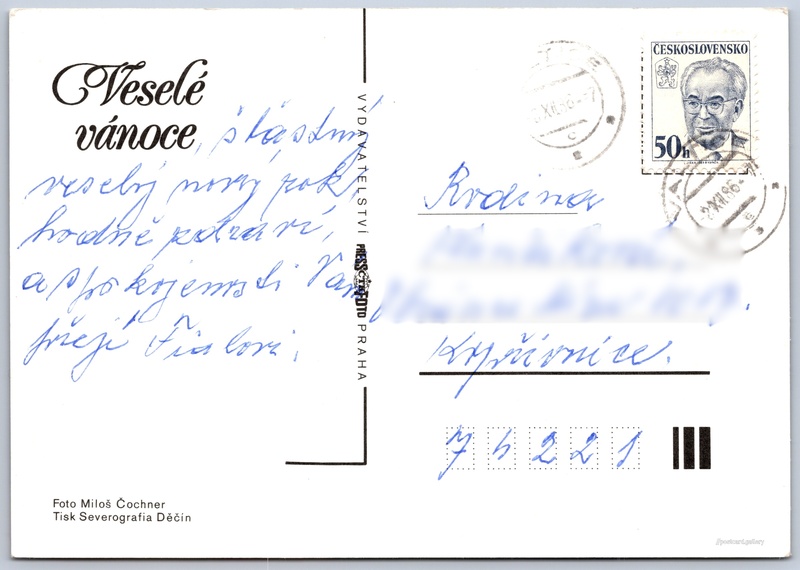 Veselé
vánoce, šťastný
veselý nový rok,
hodně zdraví,
a spokojenosti Vám
přejí Fialovi.
VYDAVATELSTVÍ PRESSFOTO PRAHA
ČESKOSLOVENSKO
50h
XII.86
XII.86
Rodina
Kopřivnice.
74221
Foto Miloš Čochner
Tisk Severografia Děčín